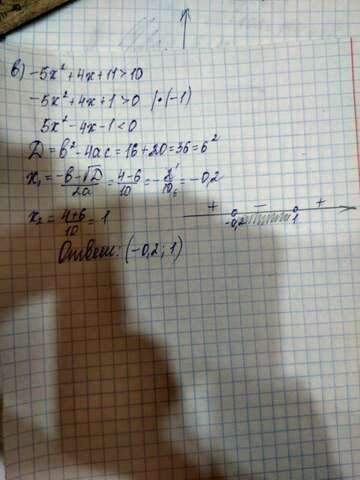 в) -5x² + 4x + 11 > 10
-5x² + 4x + 1 > 0 | · (-1)
5x² - 4x - 1 < 0
D = b² - 4ac = 16 + 20 = 36 = 6²
x₁ = (-b - √D)/2a = (4 - 6)/10 = -2/10 = -0,2
x₂ = (4 + 6)/10 = 1
+ - +
-0,2 1
Ответ: (-0,2; 1)